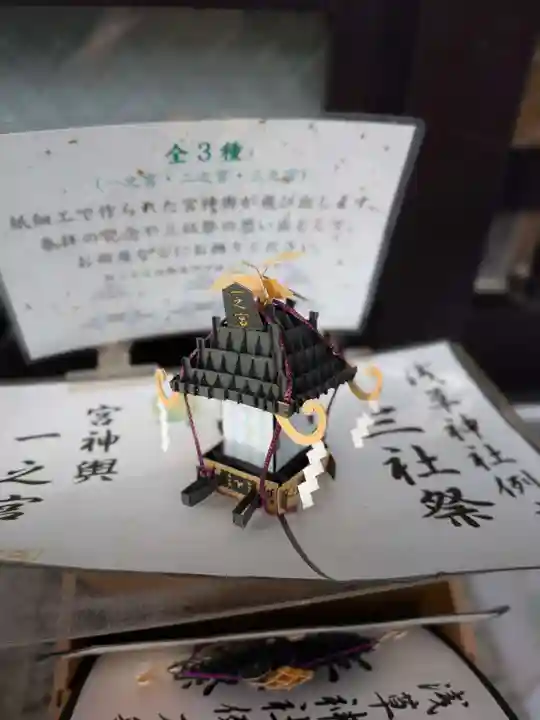 全3種
(一之宮・二之宮・三之宮)
紙細工で作られた宮神輿が飛び出します。
参拝の記念や三社祭の思い出として、
お部屋などにお飾りください。
一之宮
浅草神社例
三社祭
宮神輿
一之宮
浅草
神社例